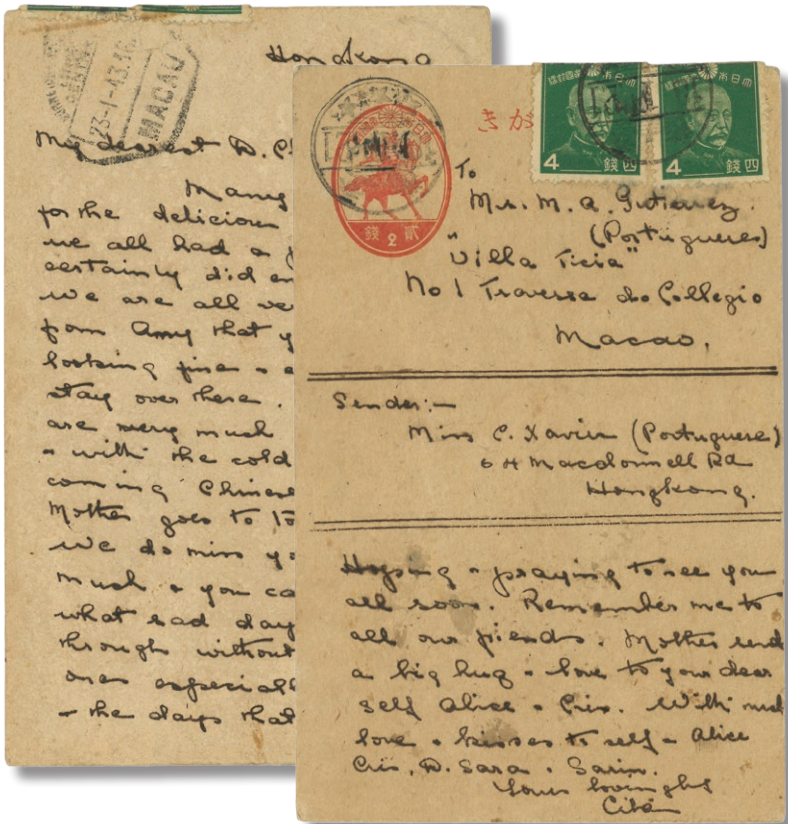 Hongkong
23-1-43.16
MACAU
My dearest D.
Many
for the delicious
we all had a
certainly did
we are all
from Amy that
looking fine &
stay over there.
are very much
& with the cold
coming Chinese
Mother goes to
we do miss
much & you
what sad
through without
ones
& the days that
きがは
大日本帝國郵便
4 錢四
大日本帝國郵便
4 錢四
錢 2 貳
To
Mrs. M. A. Gutierrez.
(Portuguese)
"Villa Ticia"
No 1 Travessa do Collegio
Macao.
Sender:-
Miss C. Xavier (Portuguese)
64 Macdonnell Rd
Hongkong.
Hoping & praying to see you
all soon. Remember me to
all our friends. Mother send
a big hug & love to your dear
self Alice & Cris. With much
love & kisses to self & Alice
Cris, D. Sara & Sarin.
Yours lovingly